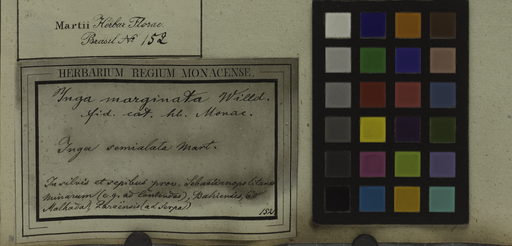 Martii Herbar. Florae
Brasil. No 152
HERBARIUM REGIUM MONACENSE.
Inga marginata Willd.
fid. cat. hb. Monac.
Inga semialata Mart.
In silvis et sepibus prov. Sebastianopolitanae
Minarum (e.g. ad Contendas), Bahiensis, ad
(ad Serpa)
152